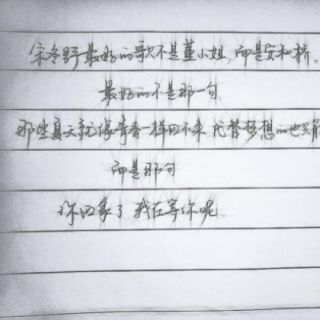 宋冬野最好的歌不是董小姐,而是安和桥。
最好的不是那一句
那些夏天就像青春一样回不来 代替梦想的也只能
而是那句
你回家了 我在等你呢